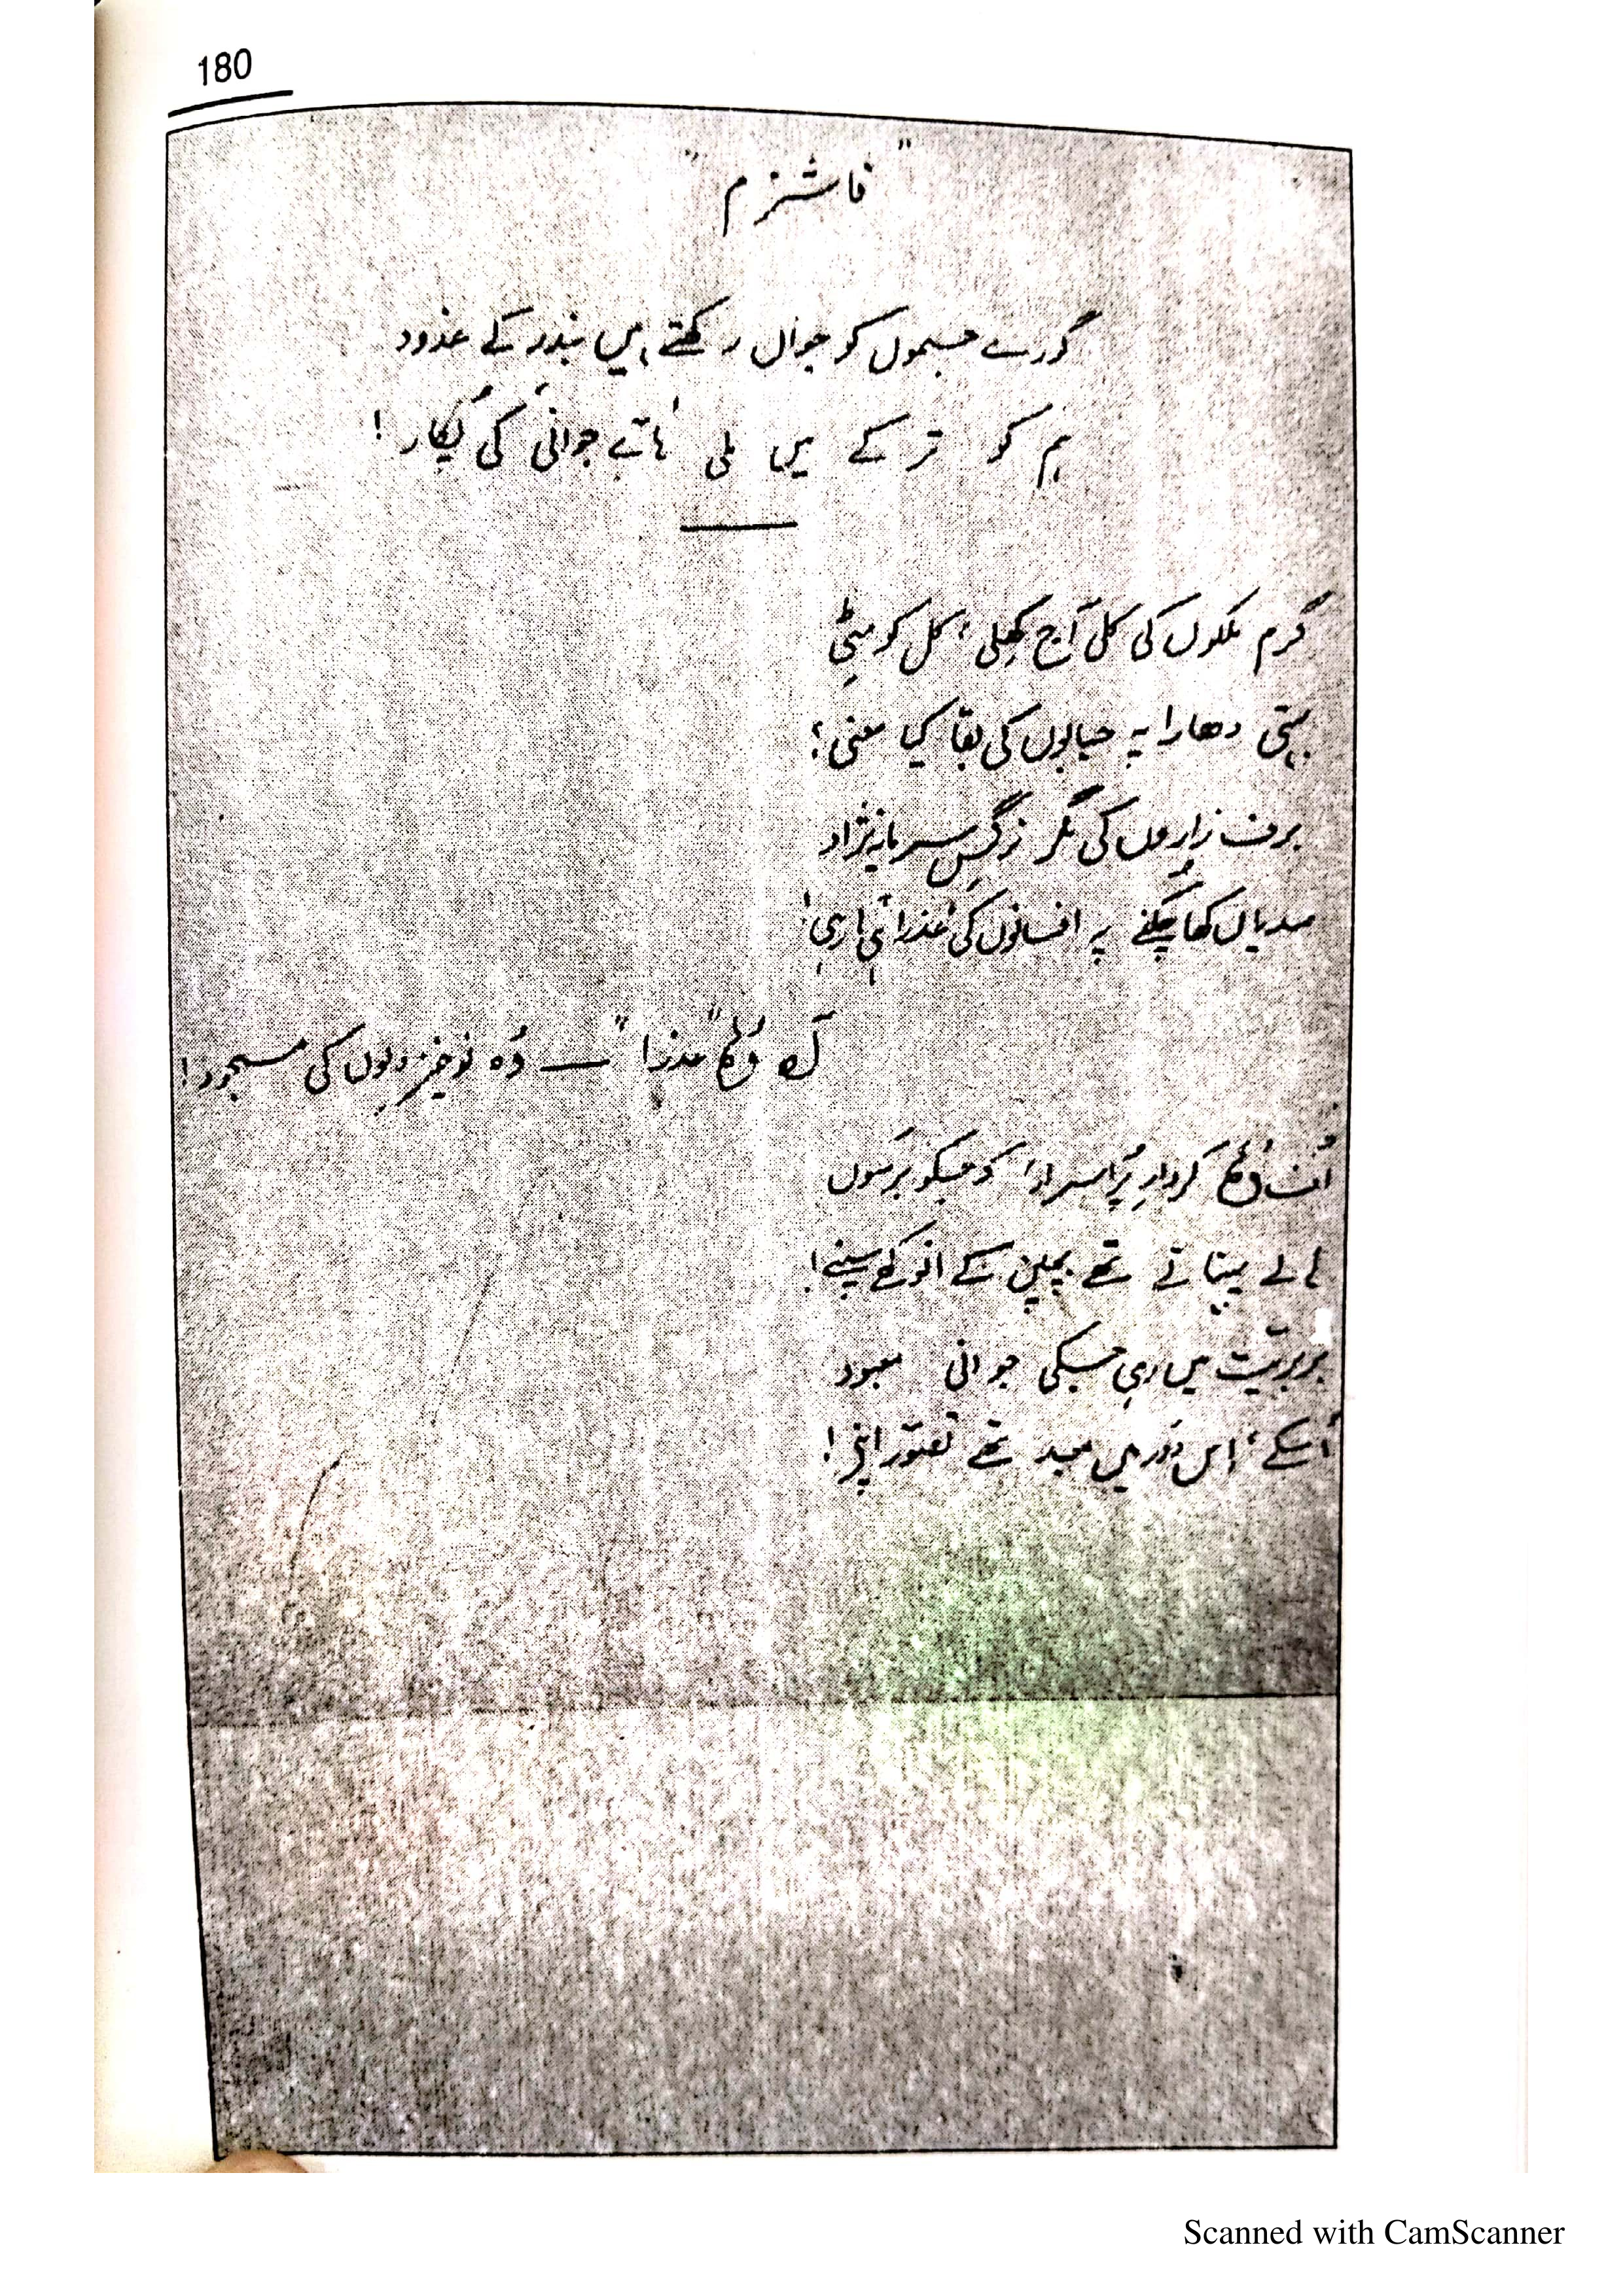 180
"فاشزم"
گورے جسموں کو جواں رکھتے ہیں بندر کے غدود
ہم کو ترکے میں ملی ہائے جوانی کی پکار!
گرم ملکوں کی کلی آج کھلی، کل کو مٹی
بہتی دھارا پہ حبابوں کی بقا کیا معنی؟
برف زاروں کی مگر نرگسِ سرمایہ نژاد
صدیاں کھا چکنے پہ افسانوں کی عذرا ہی رہی!
آہ وُہ "عذرا" — وُہ نوخیز دلوں کی مسجود!
اُف وُہ کردارِ پُراسرار کہ جسکو برسوں
ہالے پہناتے تھے بچپن کے انوکھے سپنے!
بربریت میں رہی جسکی جوانی معبود
اُسکے، اِس دَور میں معبد تھے تصوّر اپنے!
Scanned with CamScanner